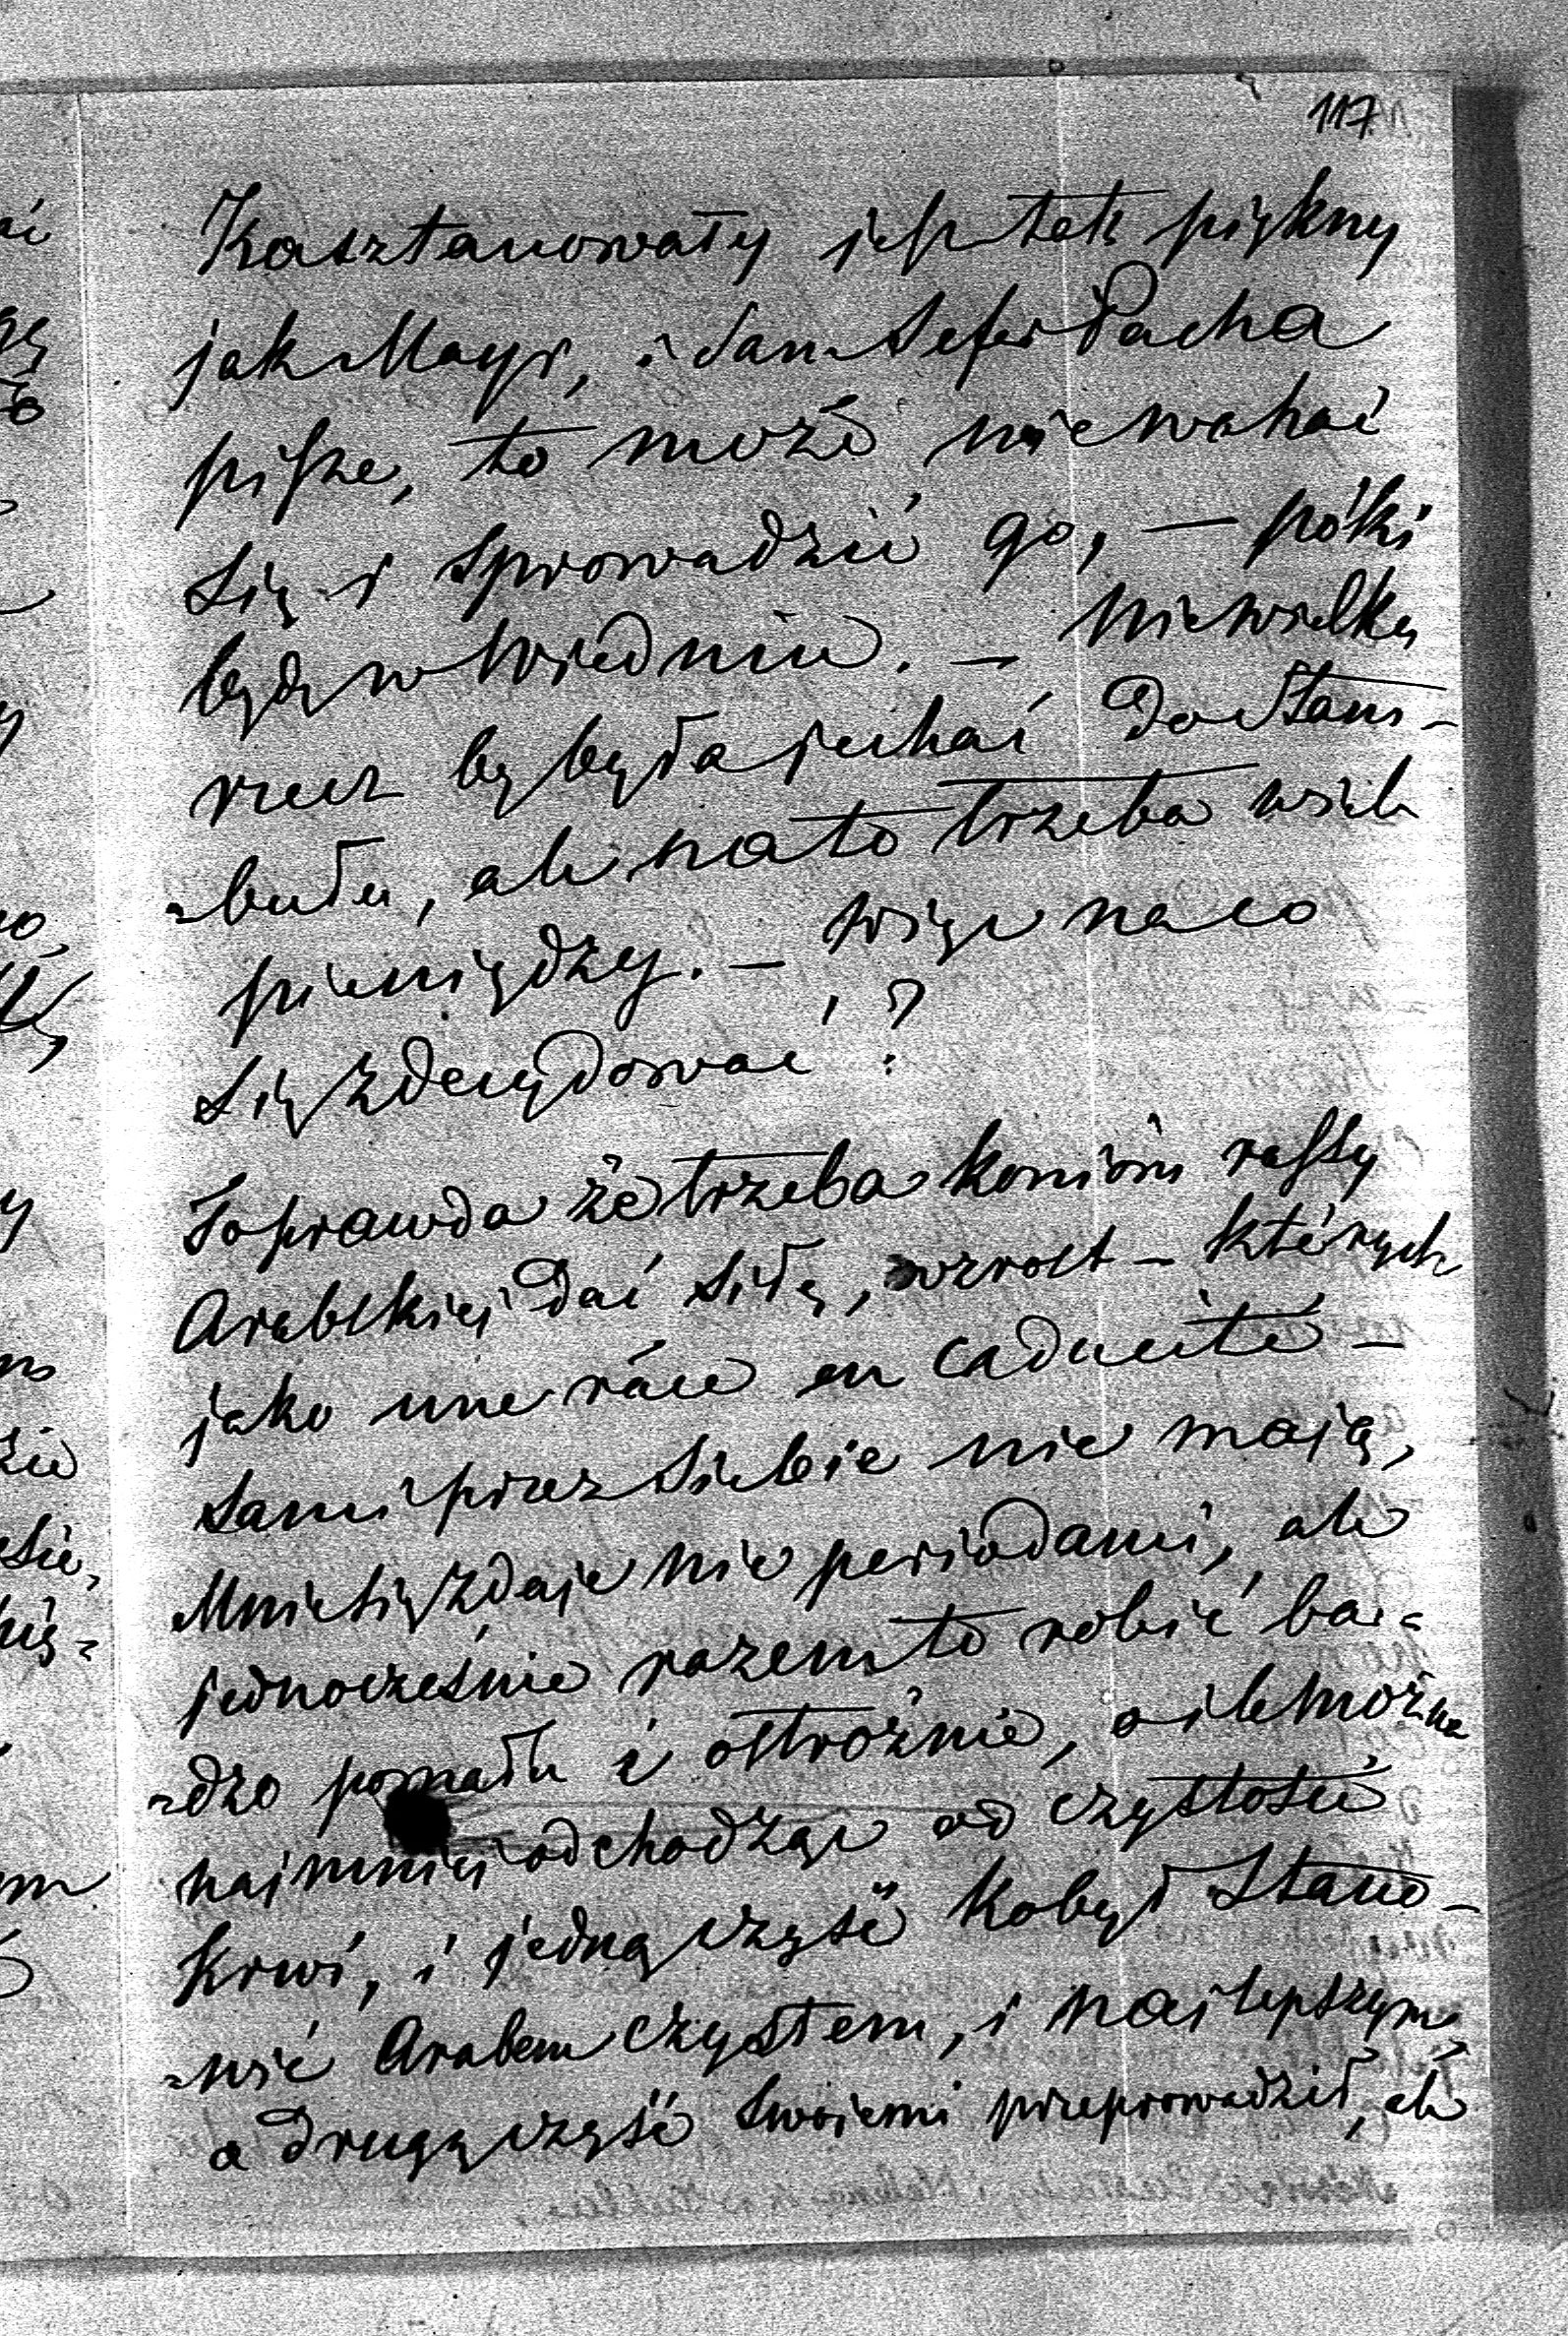 117
Kasztanowaty jest tak piękny
jak Mayr, i sam Sefer Pacha
pisze, to może nie wahać
się i sprowadzić go, — póki
będę w Wiedniu. — Niewielką
rzecz by była jechać do Stam-
-bułu, ale na to trzeba wiele
pieniędzy. — więc na co
się zdecydować?
To prawda że trzeba koniom rassy
Arabskiej dać siłę, wzrost — których
jako une race en caducité —
sami przez siebie nie mają,
Mnie się zdaje nie periodami, ale
jednocześnie razem to robić bar-
-dzo pomału i ostrożnie, o ile można
najmniej odchodząc od czystości
krwi, i jedną część kobył Stano-
-wić Arabem czystem, i najlepszym,
a drugą część swoiemi przeprowadził, ale